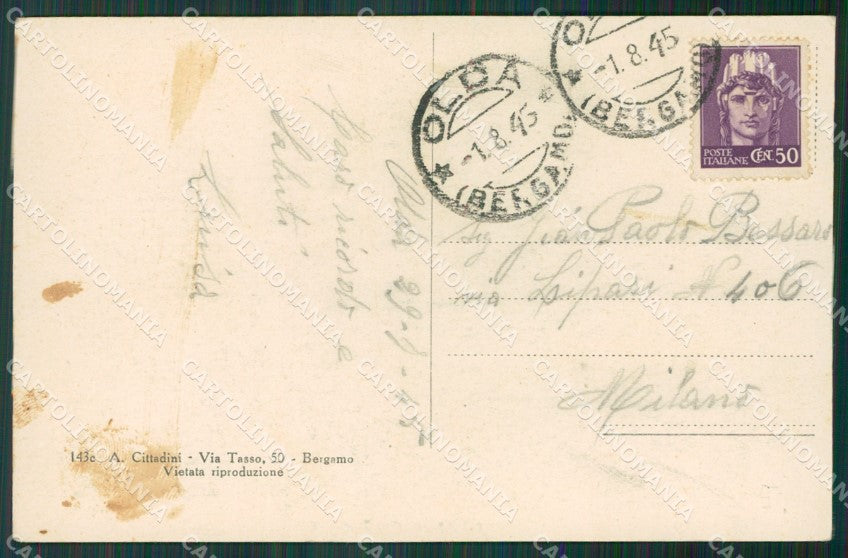 OLDA
-1.8.45
(BERGAMO)
O
-1.8.45
(BERGAMO)
POSTE
ITALIANE CENT. 50
Olda 29-7-45
Caro ricordo e
Saluti
Luisa
Sig Gian Paolo Bassani
via Lipari N 406
Milano
143c A. Cittadini - Via Tasso, 50 - Bergamo
Vietata riproduzione
CARTOLINOMANIA